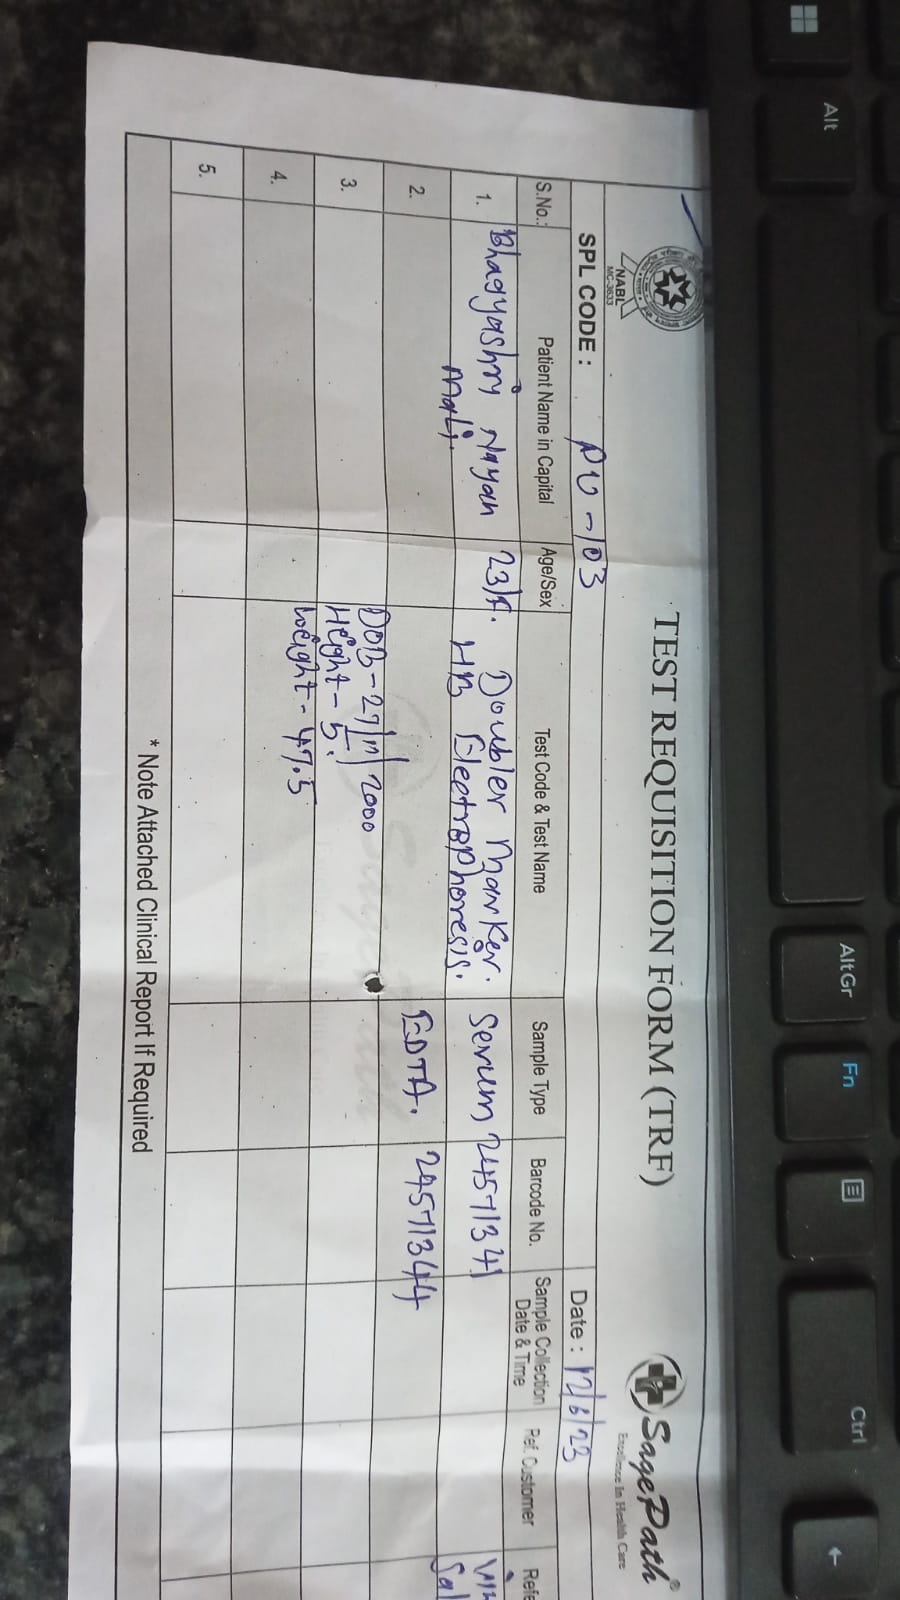 NABL
MC-3633
TEST REQUISITION FORM (TRF)
SagePath®
Excellence In Health Care
SPL CODE : PU-103
Date : 12/6/23
S.No.: Patient Name in Capital Age/Sex Test Code & Test Name Sample Type Barcode No. Sample Collection Date & Time Ref. Customer Refe
1. Bhagyashri Nayan Mali. 23/F. Doubler Marker. Serum 24571341
HB Electrophoresis.
2. EDTA. 24571344
DOB-27/11/2000
3. Height-5.
4. Weight-47.5
5.
* Note Attached Clinical Report If Required
Alt
AltGr
Fn
Ctrl
←